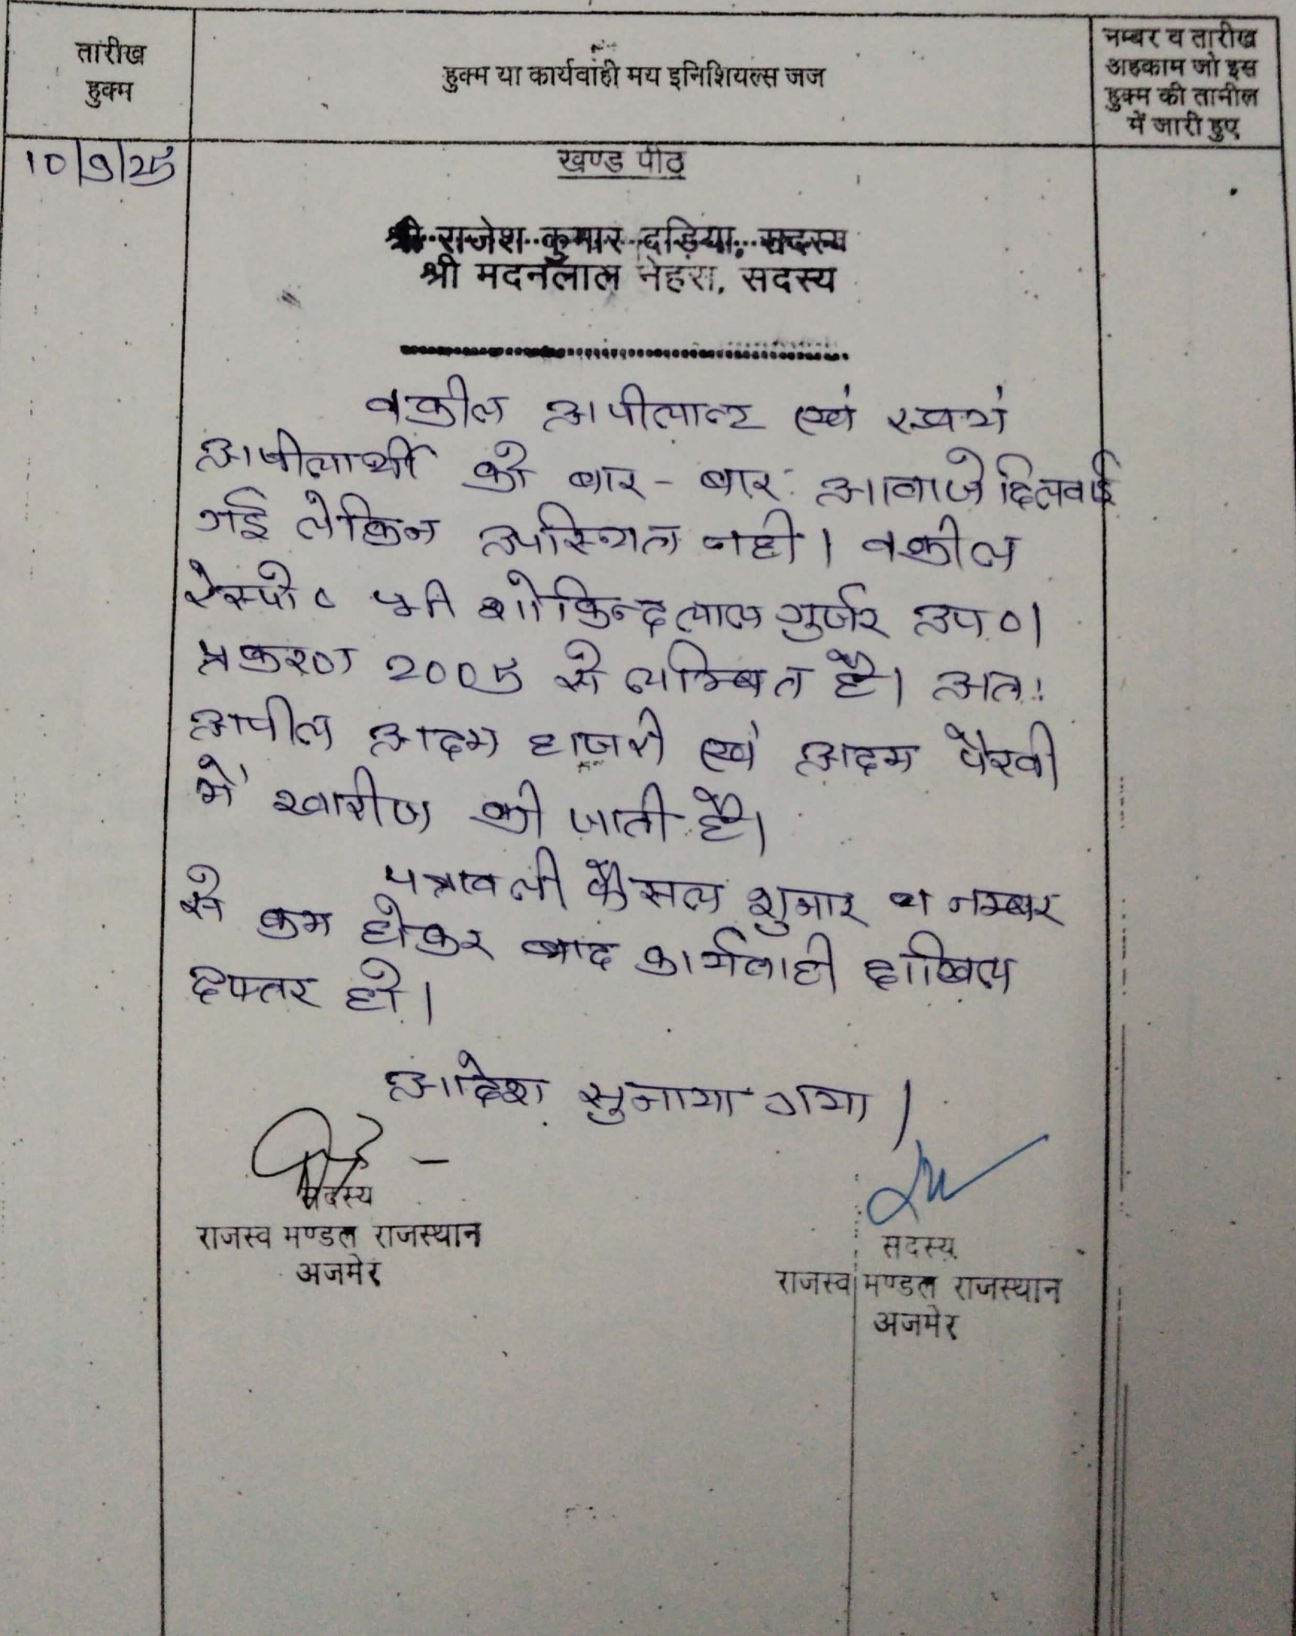 तारीख
हुक्म
हुक्म या कार्यवाही मय इनिशियल्स जज
नम्बर व तारीख
अहकाम जो इस
हुक्म की तामील
में जारी हुए
10/9/25
खण्ड पीठ
श्री राजेश कुमार दड़िया, सदस्य
श्री मदनलाल नेहरा, सदस्य
वकील अपीलान्ट एवं स्वयं
अपीलार्थी को बार-बार आवाजे दिलवाई
गई लेकिन उपस्थित नही। वकील
रेस्पो० श्री शोकिन्दलाल गुर्जर उप०।
प्रकरण 2005 से लम्बित है। अतः
अपील अदम हाजरी एवं अदम पैरवी
में खारीज की जाती है।
पत्रावली फैसल शुमार व नम्बर
से कम होकर बाद कार्यवाही दाखिल
दफ्तर हो।
आदेश सुनाया गया।
सदस्य
राजस्व मण्डल राजस्थान
अजमेर
सदस्य
राजस्व मण्डल राजस्थान
अजमेर